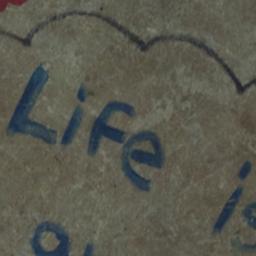 Life is